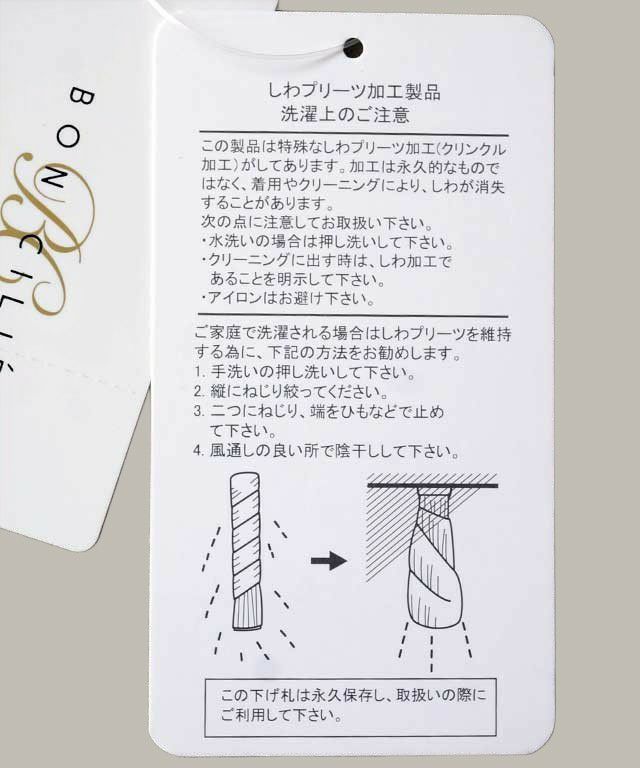 BON CILIÉ
BC
しわプリーツ加工製品
洗濯上のご注意
この製品は特殊なしわプリーツ加工(クリンクル
加工)がしてあります。加工は永久的なもので
はなく、着用やクリーニングにより、しわが消失
することがあります。
次の点に注意してお取扱い下さい。
・水洗いの場合は押し洗いして下さい。
・クリーニングに出す時は、しわ加工で
あることを明示して下さい。
・アイロンはお避け下さい。
ご家庭で洗濯される場合はしわプリーツを維持
する為に、下記の方法をお勧めします。
1. 手洗いの押し洗いして下さい。
2. 縦にねじり絞ってください。
3. 二つにねじり、端をひもなどで止め
て下さい。
4. 風通しの良い所で陰干しして下さい。
この下げ札は永久保存し、取扱いの際に
ご利用して下さい。